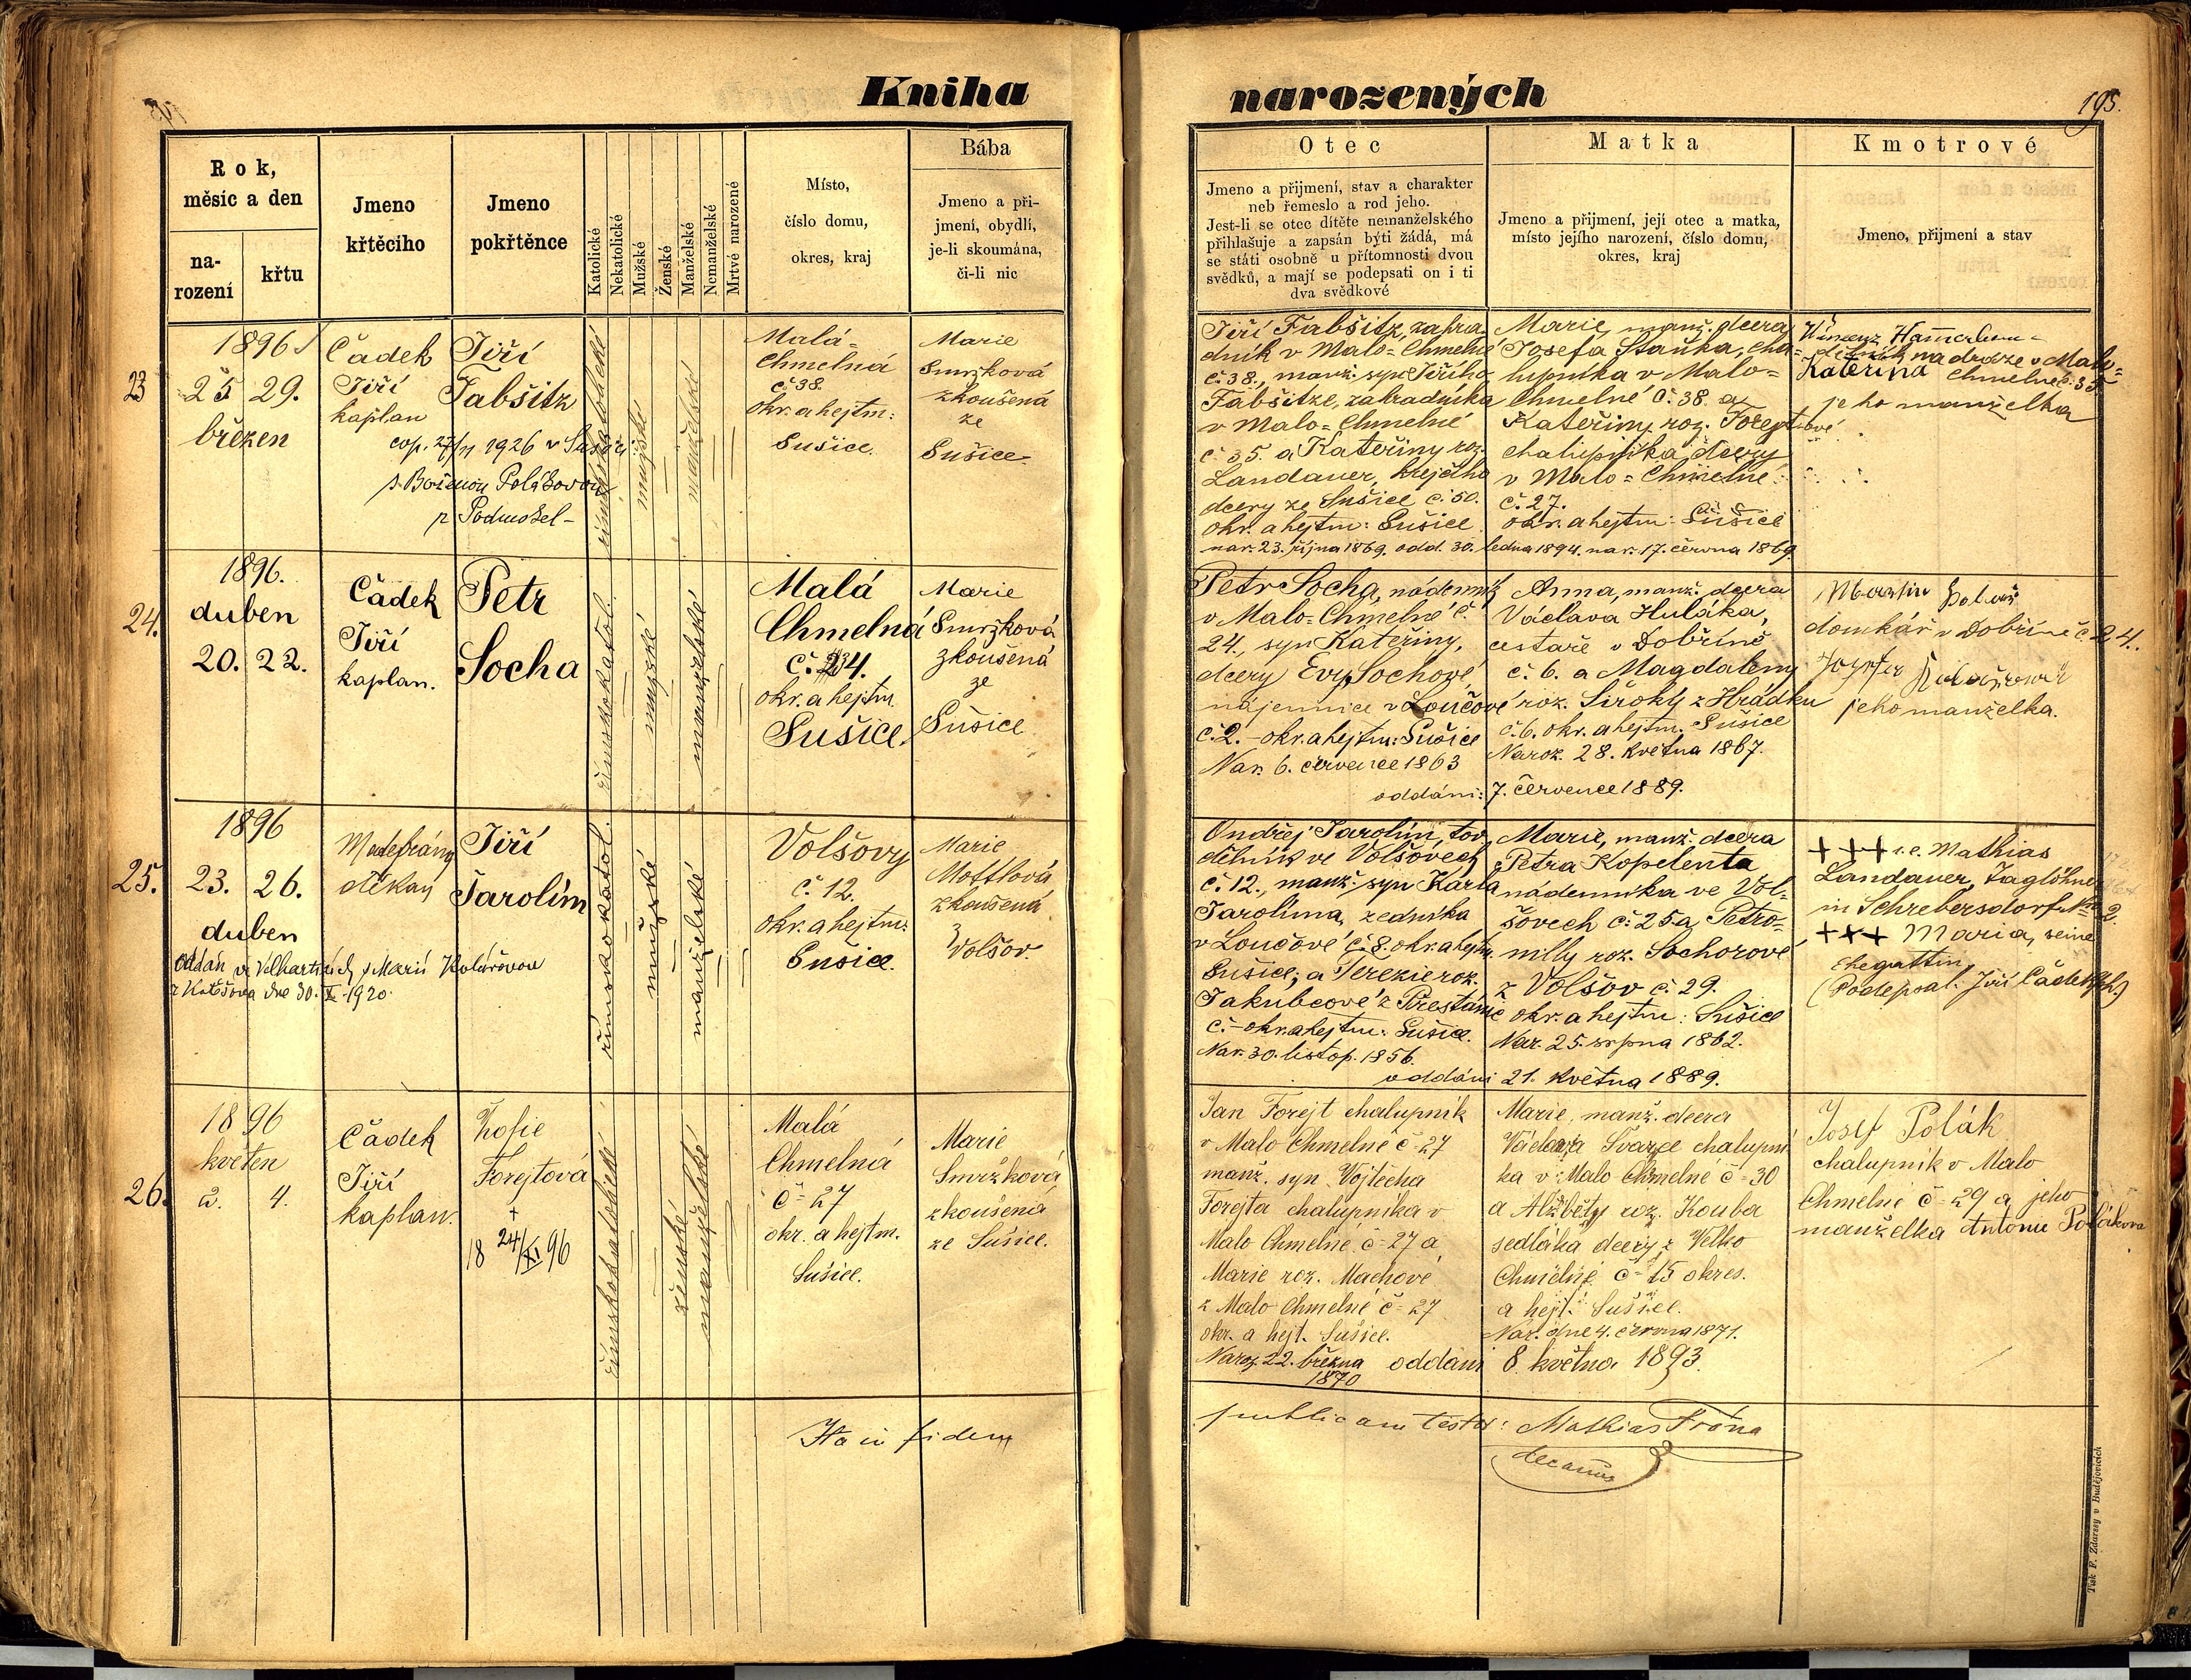 Kniha
narozených
195.
Rok,
měsíc a den
na-
rození
křtu
Jmeno
křtěcího
Jmeno
pokřtěnce
Katolické
Nekatolické
Mužské
Ženské
Manželské
Nemanželské
Mrtvé narozené
Místo,
číslo domu,
okres, kraj
Bába
Jmeno a při-
jmení, obydlí,
je-li skoumána,
či-li nic
Otec
Jmeno a přijmení, stav a charakter
neb řemeslo a rod jeho.
Jest-li se otec dítěte nemanželského
přihlašuje a zapsán býti žádá, má
se státi osobně u přítomnosti dvou
svědků, a mají se podepsati on i ti
dva svědkové
Matka
Jmeno a přijmení, její otec a matka,
místo jejího narození, číslo domu,
okres, kraj
Kmotrové
Jmeno, přijmení a stav
23
1896
25 29.
březen
Čádek
Jiří
kaplan
Jiří
Fabšitz
cop. 27/11 1926 v Sušici
s Boženou Polákovou
z Podmokel-
římskokatolické
mužské
manželské
Malá-
Chmelná
č 38.
okr. a hejtm:
Sušice.
Marie
Smržková
zkoušená
ze
Sušice
Jiří Fabšitz, zahra-
dník v Malo-Chmelné
č. 38., manž. syn Jiřího
Fabšitze, zahradníka
v Malo-Chmelné
č 35. a Kateřiny roz.
Landauer, krejčího
dcery ze Sušice č. 50.
okr. a hejtm: Sušice
nar. 23. října 1869. odd. 30. ledna 1894. nar. 17. června 1869.
Marie, manž. dcera
Josefa Staňka, cha-
lupníka v Malo-
Chmelné č. 38. a
Kateřiny roz. Forejtové
chalupníka dcery
v Malo-Chmelné
č. 27.
okr. a hejtm: Sušice
na dráze v Malo-
Kateřina Chmelné č. 35
jeho manželka
24.
1896.
duben
20. 22.
Čádek
Jiří
kaplan.
Petr
Socha
římskokatol.
mužské
manželské
Malá
Chmelná
č. 24.
okr. a hejtm.
Sušice.
Marie
Smržková
zkoušená
ze
Sušice
Petr Socha, nádenník
v Malo-Chmelné č.
24., syn Kateřiny,
dcery Evy Sochové,
nájemnice v Loučové
č. 2. - okr. a hejtm: Sušice
Nar. 6. července 1863
oddáni: 7. července 1889.
Anna, manž. dcera
Václava Huláka,
cestaře v Dobříně
č. 6. a Magdaleny
roz. Široký z Hrádku
č. 6. okr. a hejtm. Sušice
Naroz. 28. května 1867.
Martin
domkář v Dobříně č. 24.
jeho manželka.
25.
1896
23. 26.
duben
děkan
Jiří
Jarolím
oddán ve Velharticích s Marií Kolářovou
z Kotěšova dne 30. X. 1920.
římskokatol.
mužské
manželské
Volšovy
č 12.
okr. a hejtm:
Sušice.
Marie
Mottlová
zkoušená
z
Volšov.
Ondřej Jarolím, tov.
dělník ve Volšovech
č. 12., manž. syn Karla
Jarolíma, zedníka
v Loučové č. 8. okr. a hejtm.
Sušice; a Terezie roz.
Jakubcové z Přestanic
č. - okr. a hejtm: Sušice.
Nar. 30. listop. 1856.
oddáni 21. května 1889.
Marie, manž. dcera
Petra Kopelenta
nádenníka ve Vol-
šovech č. 25 a Petro-
nilly roz. Sochorové
z Volšov č. 29.
okr. a hejtm: Sušice
Nar. 25. srpna 1862.
+++ i.e. Mathias
Landauer, Taglöhner
in Schrebersdorf N. 2.
+++ Maria, seine
Ehegattin
(Podepsal: Jiří Čádek kpl.)
26.
1896
květen
2. 4.
Čádek
Jiří
kaplan.
Žofie
Forejtová
+
18 24/XI 96
římskokatolické
ženské
manželské
Malá
Chmelná
č = 27
okr. a hejtm.
Sušice.
Marie
Smržková,
zkoušená
ze Sušice.
Jan Forejt chalupník
v Malo Chmelné č = 27
manž. syn Vojtěcha
Forejta chalupníka v
Malo Chmelné č = 27 a
Marie roz. Machové
z Malo Chmelné č = 27
okr. a hejt. Sušice.
Naroz. 22. března oddáni 8. května 1893.
1870
Marie, manž. dcera
Václava Švarce chalupní
ka v Malo Chmelné č = 30
a Alžběty roz. Kouba
sedláka dcery z Velko
Chmelné č = 15 okres.
a hejt. Sušice.
Nar. dne 4. června 1871.
Josef Polák
chalupník v Malo
Chmelné č = 29 a jeho
manželka Antonie Poláková
Ita in fidem
publicam testor: Mathias Frána
decanus
Tisk F. Zdarssy v Budějovicích